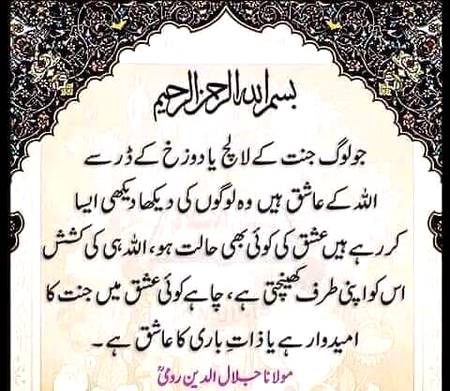 بسم اللہ الرحمن الرحیم
جو لوگ جنت کے لالچ یا دوزخ کے ڈر سے
اللہ کے عاشق ہیں وہ لوگوں کی دیکھا دیکھی ایسا
کر رہے ہیں عشق کی کوئی بھی حالت ہو، اللہ ہی کی کشش
اس کو اپنی طرف کھینچتی ہے، چاہے کوئی عشق میں جنت کا
امیدوار ہے یا ذاتِ باری کا عاشق ہے۔
مولانا جلال الدین رومیؒ